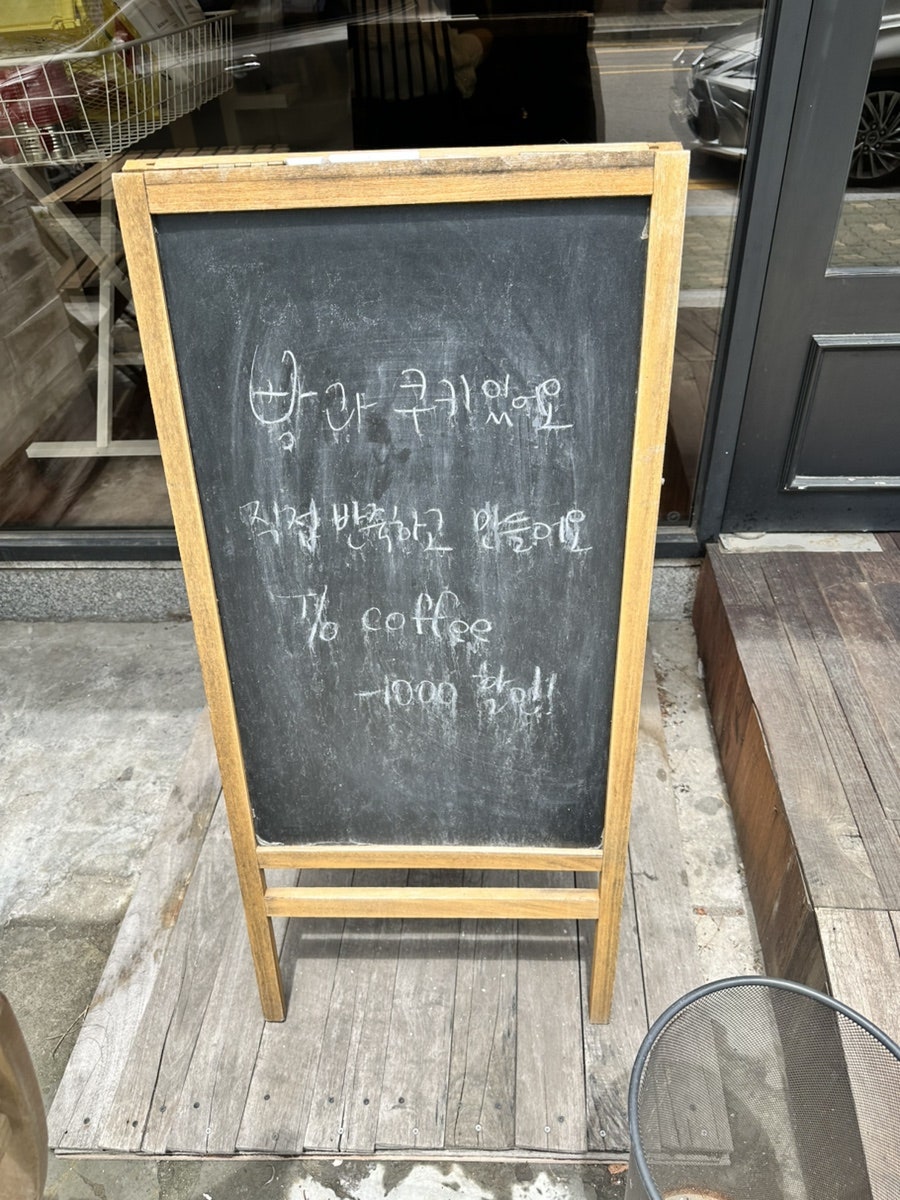 빵과 쿠키있어요
직접 반죽하고 만들어요
T/o coffee
-1000 할인!!